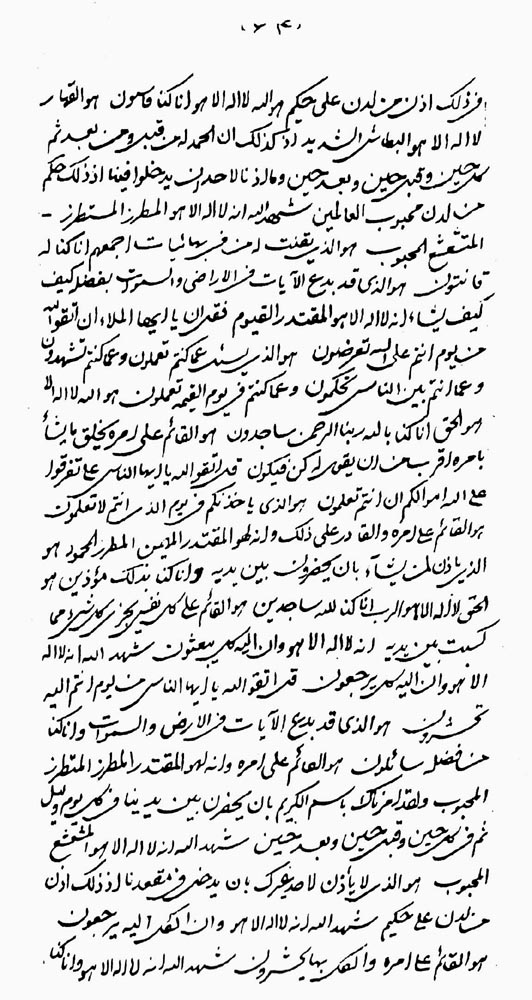 ٦٣
فی ذلک اذن من لدن علی حکیم هو الله لا اله الا هو انا کنا قاصون هو القهار
لا اله الا هو البطاش الشدید اذ کذلک ان الحمد له من قبل و من بعد ثم
کل حین و قبل حین و بعد حین و مااذنا لاحد ان یدخلوا فینا اذ ذلک حکم
من لدن محبوب العالمین شهد الله انه لا اله الا هو المطرز المتطرز
المتشعشع المحبوب هو الذی یقنت له من فی اجمعهم انا کنا له
قانتون هو الذی قد بدع الآیات فی الاراضی و السموات بفضله کیف
کیف یشاء انه لا اله الا هو المقتدر القیوم فقل ان یا ایها الملاء ان اتقوا الله
من یوم انتم علی الله تعرضون هو الذی یسئل عما کنتم تعملون و عما کنتم تشهدون
و عما انتم بین الناس تحکمون و عما کنتم فی یوم القیمة تعملون هو الله لا اله الا
هو الحق انا کنا بالله ربنا الرحمن ساجدون هو القائم علی امره یخلق ما یشأ
بامره اقرب من ان یقول له کن فیکون قل اتقوا الله یا ایها الناس عما تفرقوا
علی الله اموالکم ان انتم تعلمون هو الذی یاخذنکم فی یوم الذی انتم لا تعلمون
هو القائم علی امره و القادر علی ذلک و انه لهو المقتدر المطرز المحمود هو
الذی یاذن لمن یشآء بان یحضرون بین یدیه و انا کنا بذلک مؤذنین هو
الحق لا اله الا هو الرب انا کنا لله ساجدین هو القائم علی کل نفس یجزی کل شیء مما
کسبت بین یدیه انه لا اله الا هو و ان الیه کل یبعثون شهد الله انه لا اله
الا هو و ان الیه کل یرجعون قل اتقوا الله یا ایها الناس من یوم انتم الیه
تحشرون هو الذی قد بدع الآیات فی الارض و السموات و انا کنا
من فضله سائلون هو القائم علی امره و انه لهو المقتدر المطرز المتطرز
المحبوب و لقد امرناک باسم الکریم بان یحضرن بین یدینا فی کل یوم و لیل
ثم فی کل حین و قبل حین و بعد حین شهد الله انه لا اله الا هو المتشعشع
المحبوب هو الذی لا یأذن لاحد غیرک بان یدخل فی مقعدنا اذ ذلک اذن
من لدن علی حکیم شهد الله انه لا اله الا هو و ان الکل الیه یرجعون
هو القائم علی امره و الکل بها یحشرون شهد الله انه لا اله الا هو و انا کنا